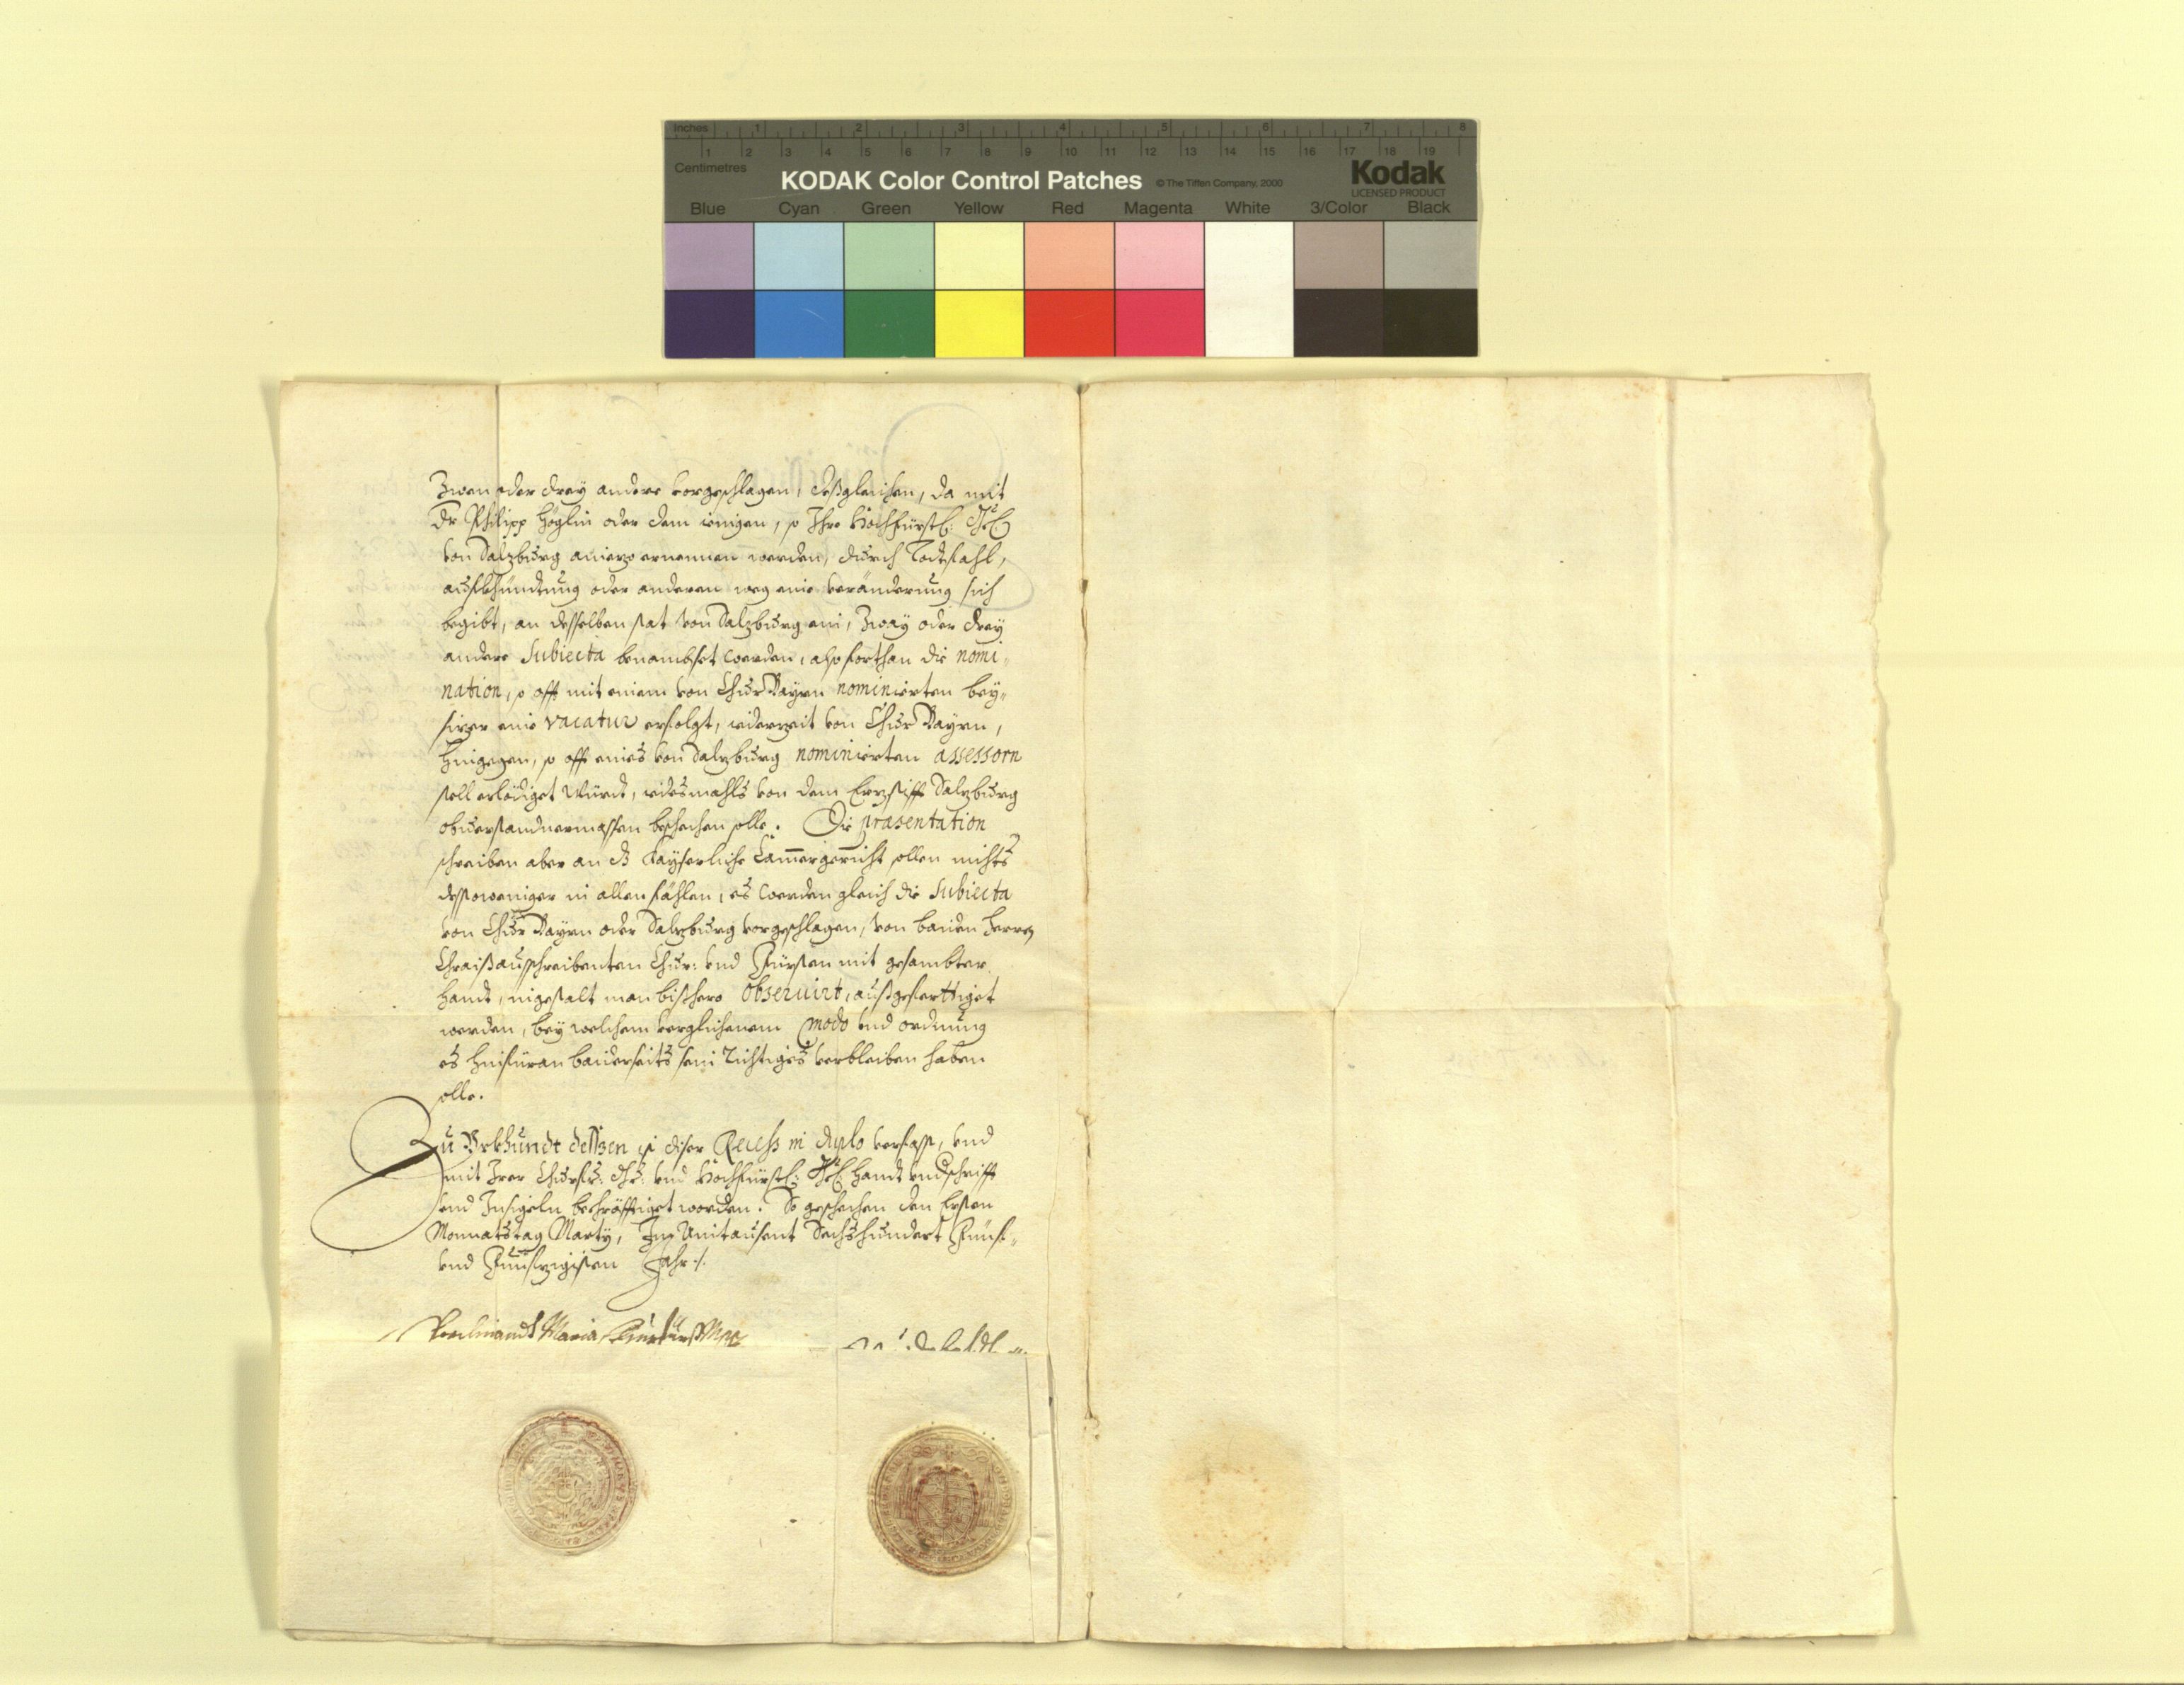 Inches 1 2 3 4 5 6 7 8
1 2 3 4 5 6 7 8 9 10 11 12 13 14 15 16 17 18 19
Centimetres
KODAK Color Control Patches © The Tiffen Company, 2000 Kodak
LICENSED PRODUCT
Blue Cyan Green Yellow Red Magenta White 3/Color Black
Zwen oder drey andere vorgeschlagen, deßgleichen, da mit
Dr Philipp Höglin oder dem ienigen, so Ihre Hochfürstl:
von Salzburg aniezo ernennen werden, durch Todtfahl,
aufkhündtung oder anderen weg eine veränderung sich
begibt, an desselben stat von Salzburg ein, Zway oder drey
andere Subiecta benambset werden, also forthan die nomi-
nation, so offt mit einem von Chur Bayrn nominierten bey-
sizer eine vacatur erfolgt, iederzeit von Chur Bayrn,
hingegen, so offt eines von Salzburg nominierten assessorn
stell erlediget würdt, iedesmahls von dem Erzstifft Salzburg
obuerstandnermassen beschechen solle. Die præsentation
schreiben aber an dz Kayserliche Cam̄ergericht sollen nichts
destoweniger in allen fählen, es werden gleich die Subiecta
von Chur Bayrn oder Salzburg vorgeschlagen, von baiden herrn
Chraißaußschreibenten Chur: vnd Fürsten mit gesambter
handt, ingestalt man bißhero obseruirt, außgeferttiget
werden, bey welchem verglichenem modo vnd ordnung
es hinfüran baiderseits sein richtiges verbleiben haben
solle.
Zu Vrkhundt dessen ist diser Recess in duplo verfasst, vnd
mit Irer Churfr: Dr: vnd Hochfürstl: handt vndschrifft
vnd Insigeln bekräfftiget worden. So geschechen den Ersten
Monnatstag Marty, Im Aintausent Sechshundert Fünf-
vnd Fünfzigisten Jahr.
Ferdinandt Maria Churfürst